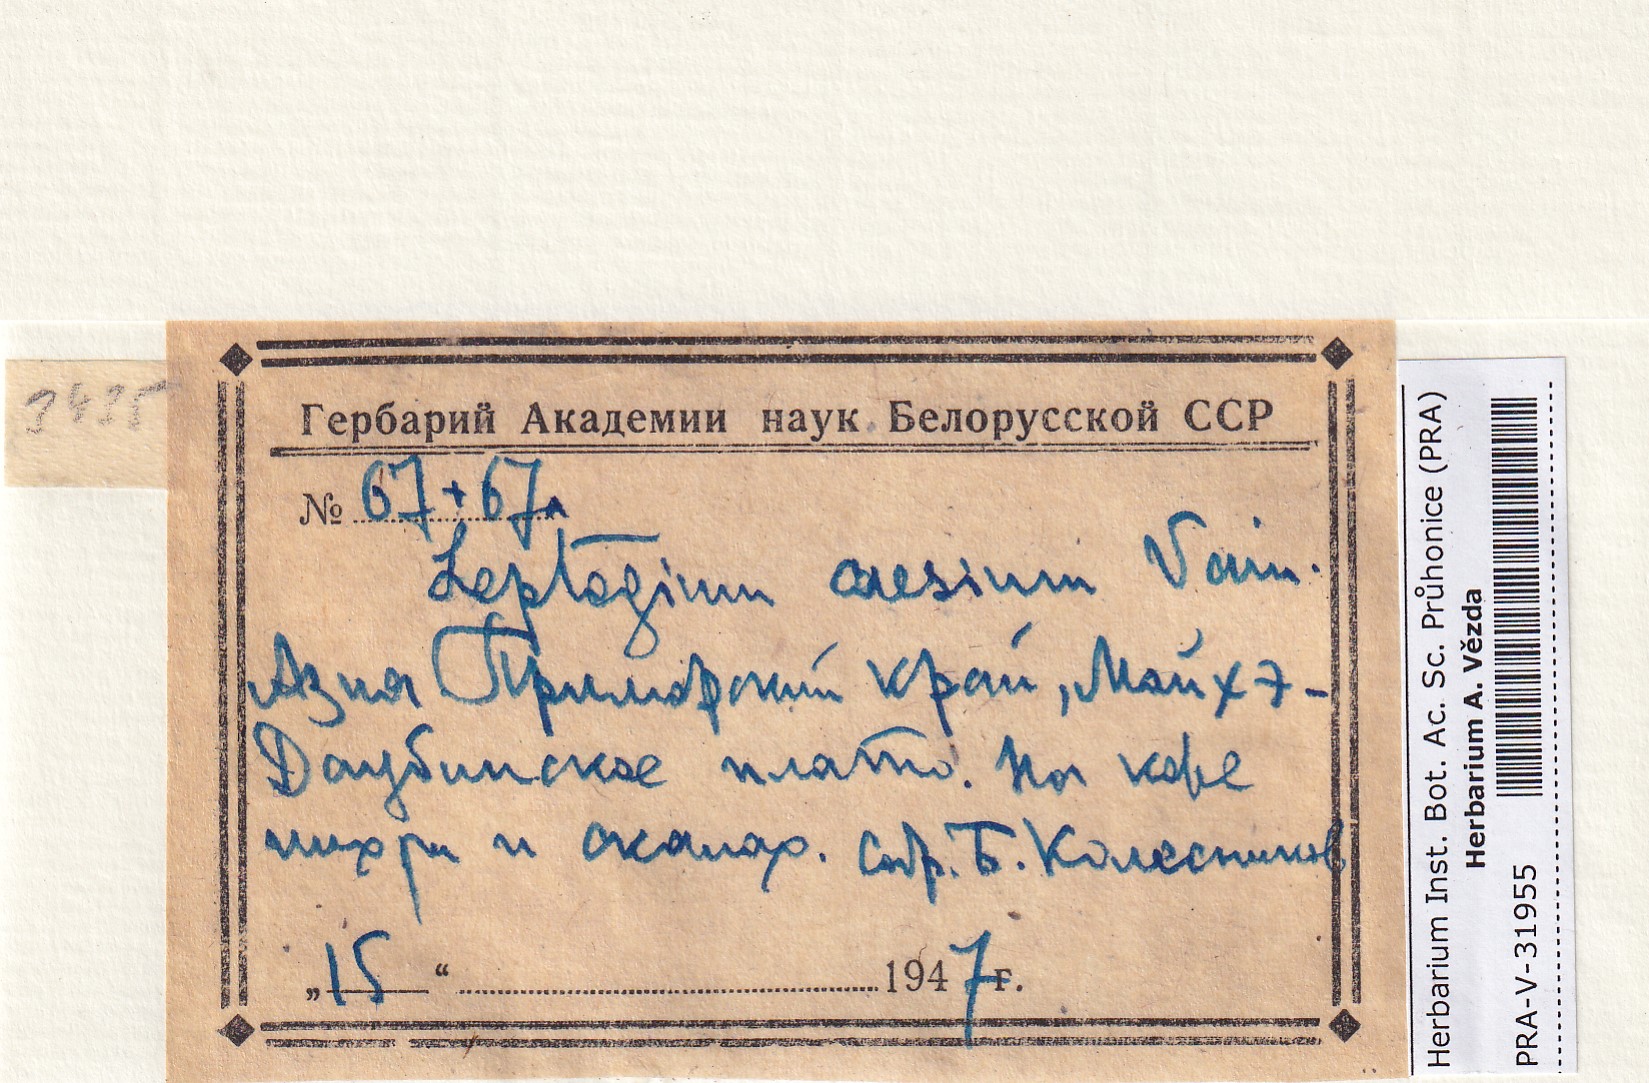 3435
Гербарий Академии наук Белорусской ССР
№ 67+67а
Leptogium caesium Vain.
Азия Приморский край, Майхэ-
Даубинское плато. На коре
пихты и скалах. собр. Б. Колесников
„15“ 1947 г.
Herbarium Inst. Bot. Ac. Sc. Průhonice (PRA)
Herbarium A. Vězda
PRA-V-31955